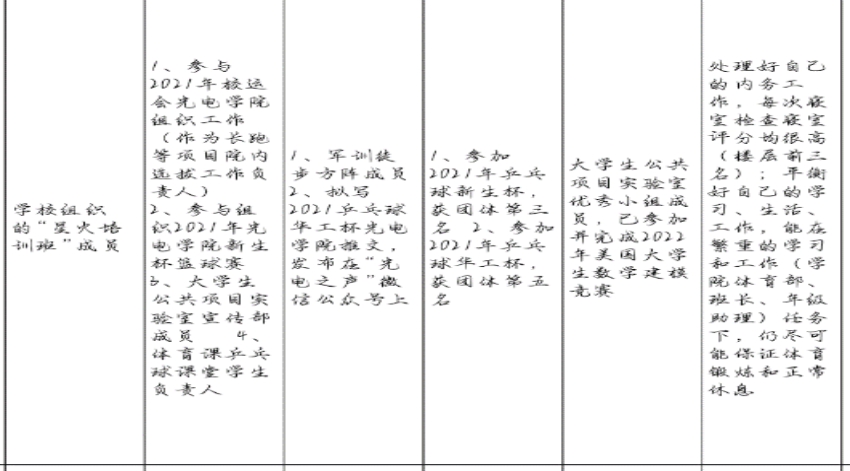 学校组织
的“星火培
训班”成员
1、参与
2021年校运
会光电学院
组织工作
（作为长跑
等项目院内
选拔工作负
责人）
2、参与组
织2021年光
电学院新生
杯篮球赛
3、大学生
公共项目实
验室宣传部
成员 4、
体育课乒乓
球课堂学生
负责人
1、军训徒
步方阵成员
2、拟写
2021乒乓球
华工杯光电
学院推文，
发布在“光
电之声”微
信公众号上
1、参加
2021年乒乓
球新生杯，
获团体第三
名 2、参加
2021年乒乓
球华工杯，
获团体第五
名
大学生公共
项目实验室
优秀小组成
员，已参加
并完成2022
年美国大学
生数学建模
竞赛
处理好自己
的内务工
作，每次寝
室检查寝室
评分均很高
（楼层前三
名）；平衡
好自己的学
习、生活、
工作，能在
繁重的学习
和工作（学
院体育部、
班长、年级
助理）任务
下，仍尽可
能保证体育
锻炼和正常
休息